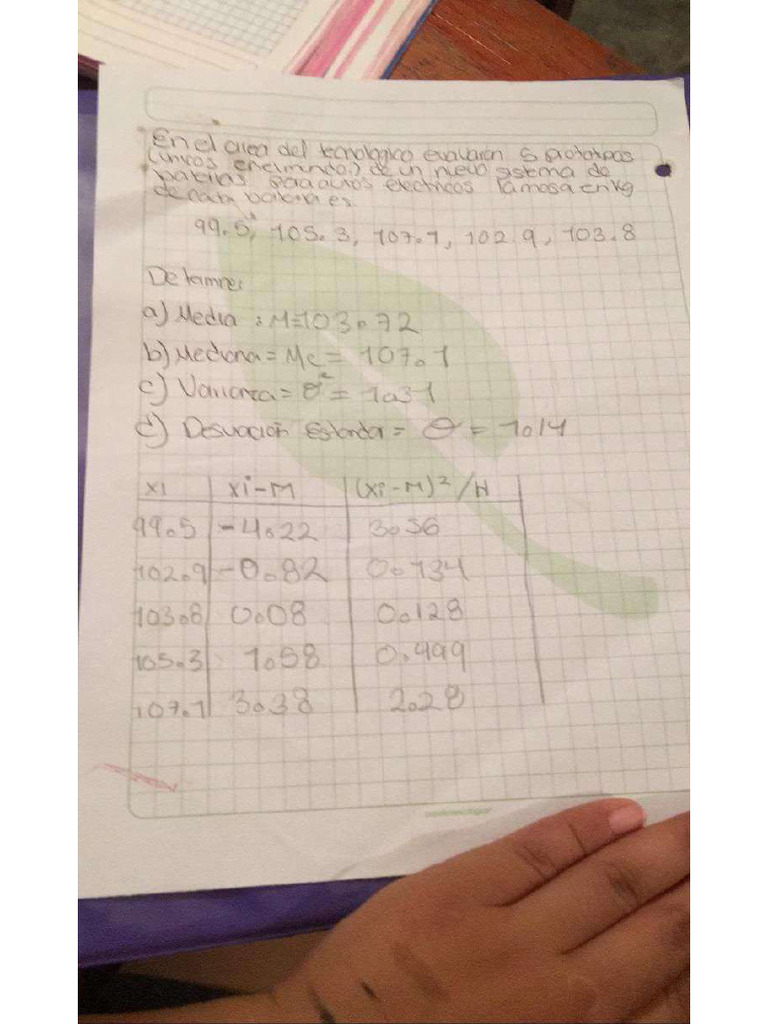 En el area del tecnologico evaluaron 5 prototipos
(unicos en el mundo) de un nuevo sistema de
baterias para autos electricos la masa en kg
de cada bateria es.
99.5, 105.3, 107.1, 102.9, 103.8
Determine:
a) Media : M=103.72
b) Mediana = Me = 107.1
c) Varianza = θ² = 1.31
d) Desviación Estandar = θ = 1.14
xi | xi-M | (xi-M)²/N
99.5 | -4.22 | 3.56
102.9 | -0.82 | 0.134
103.8 | 0.08 | 0.128
105.3 | 1.58 | 0.499
107.1 | 3.38 | 2.28